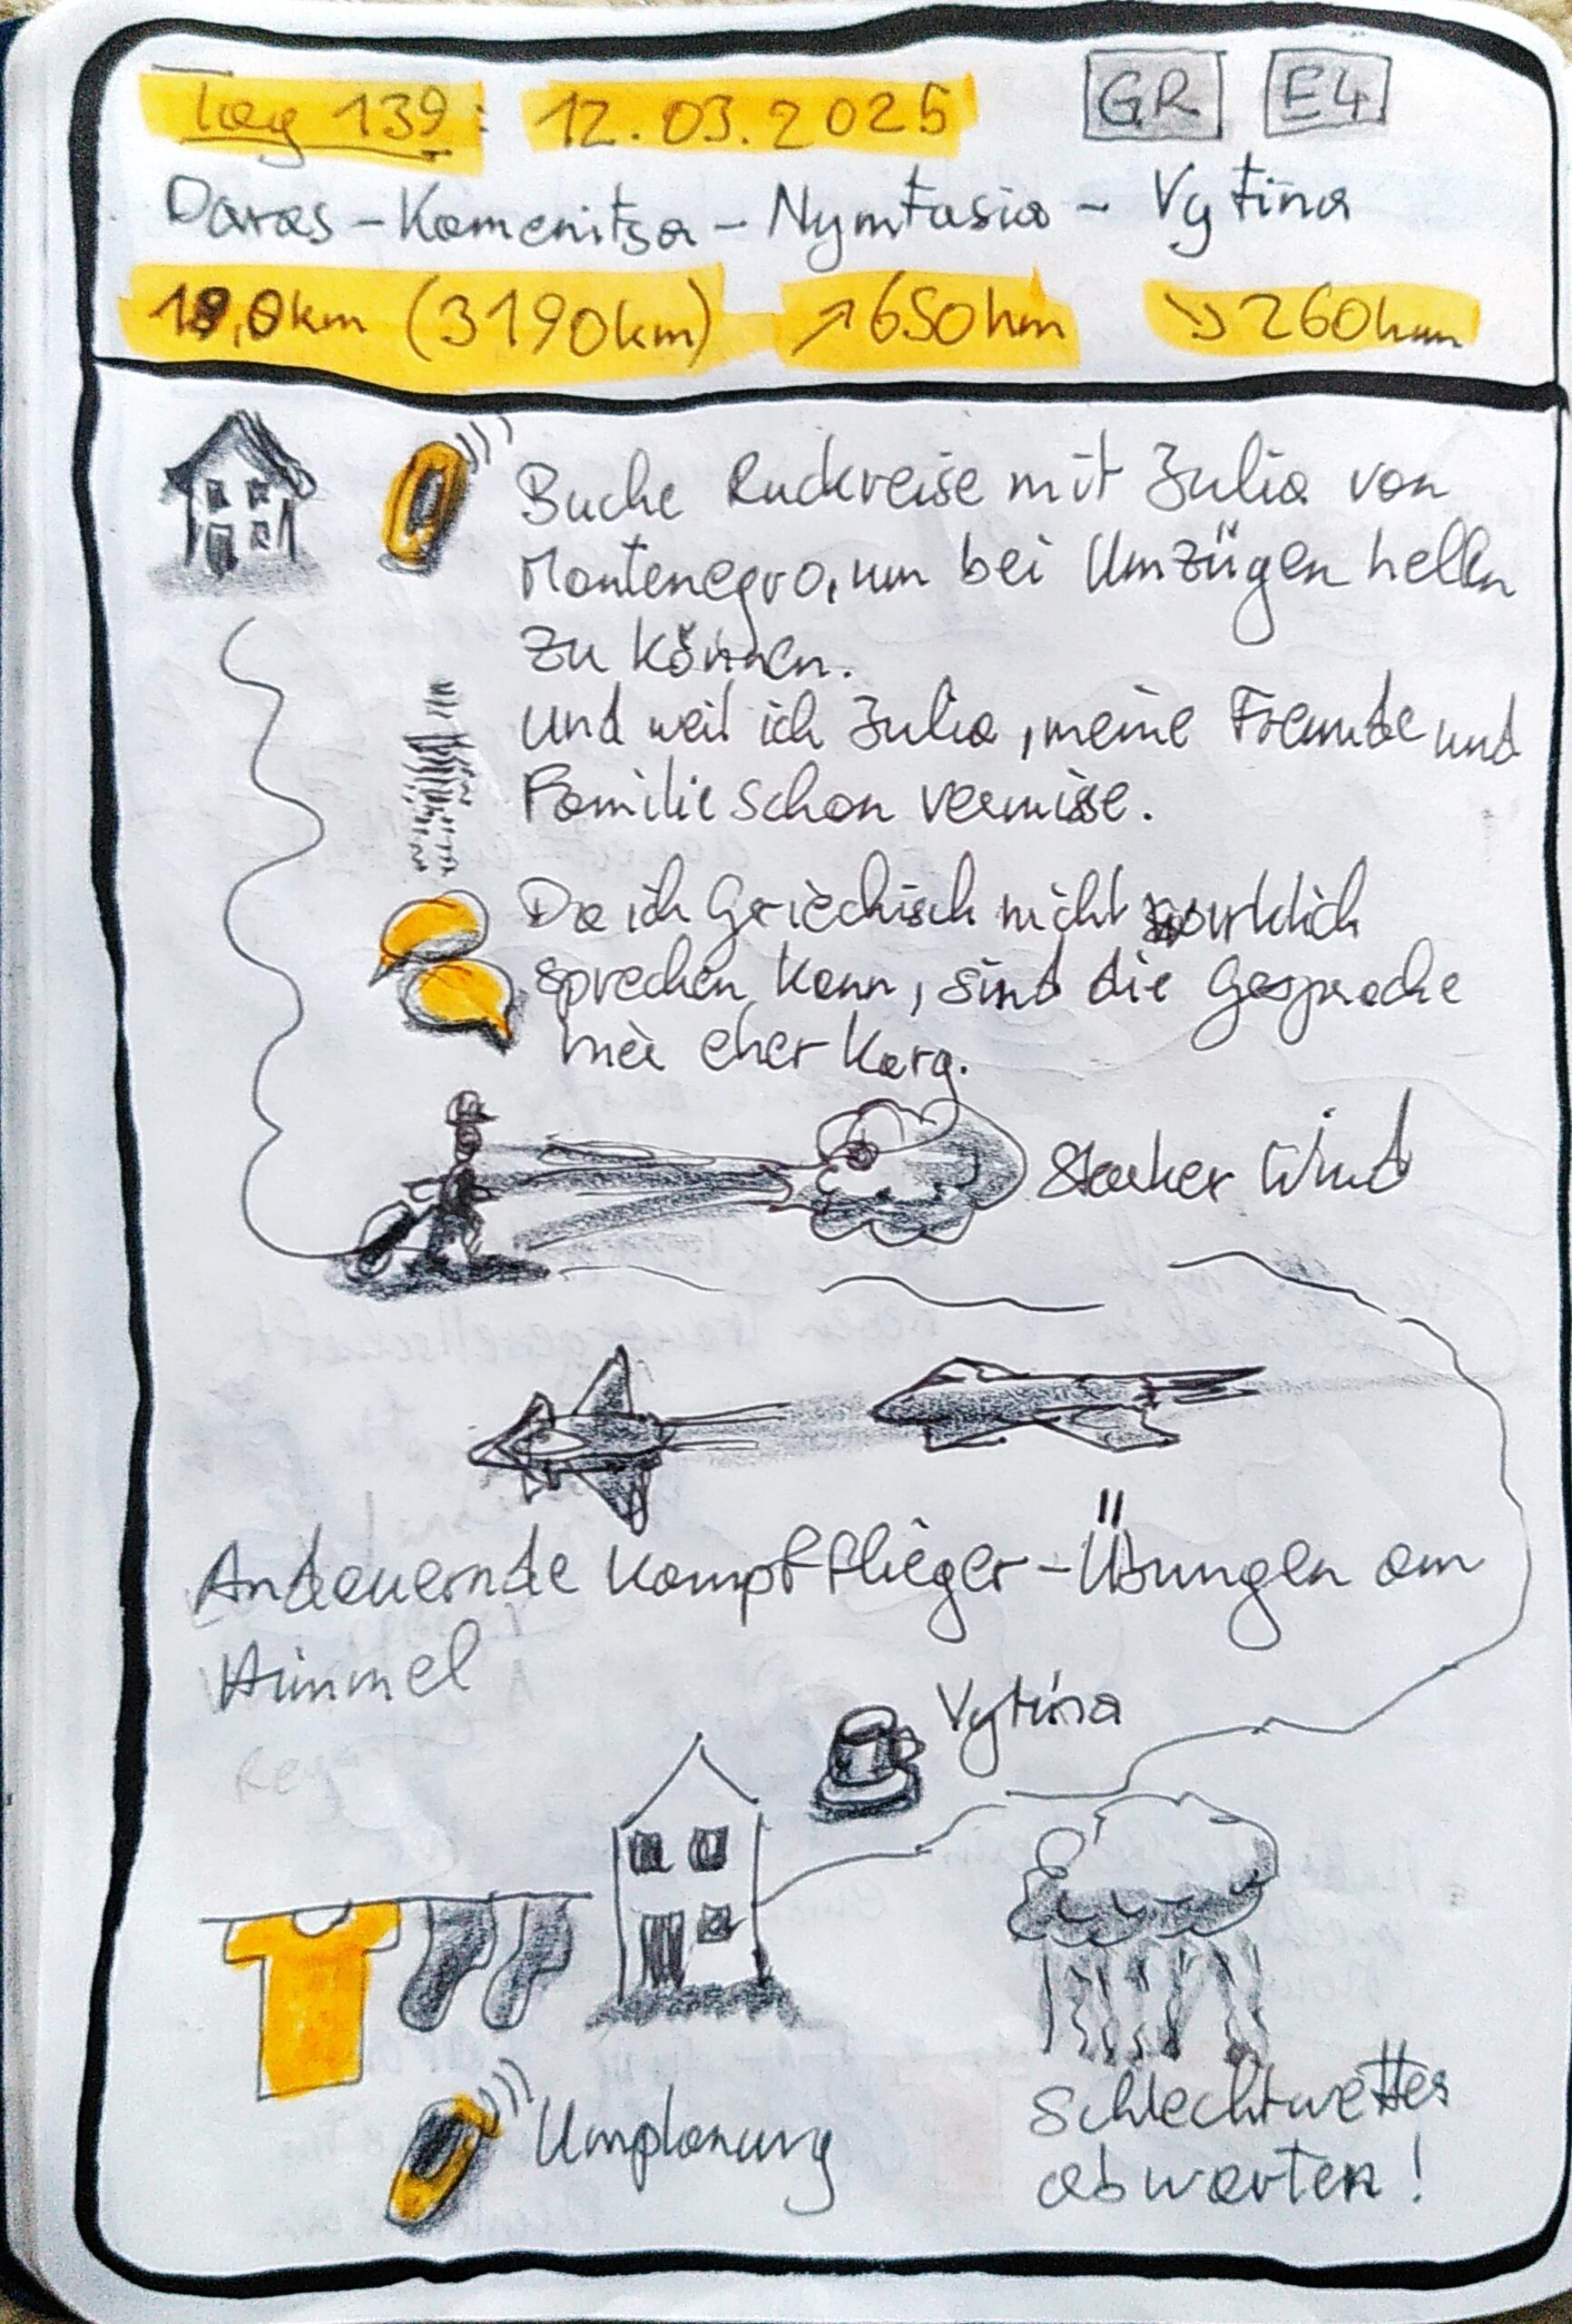 Tag 139: 12.03.2025 GR E4
Daras - Kamenitsa - Nymfasia - Vytina
18,0km (3190km) ↗650hm ↘260hm
Buche Rückreise mit Julia von
Montenegro, um bei Umzügen helfen
zu können.
Und weil ich Julia, meine Freunde und
Familie schon vermisse.
Da ich Griechisch nicht wirklich
sprechen kann, sind die Gespräche
hier eher karg.
Starker Wind
Andauernde Kampfflieger-Übungen am
Himmel
Vytina
Umplanung
Schlechtwetter
abwarten!